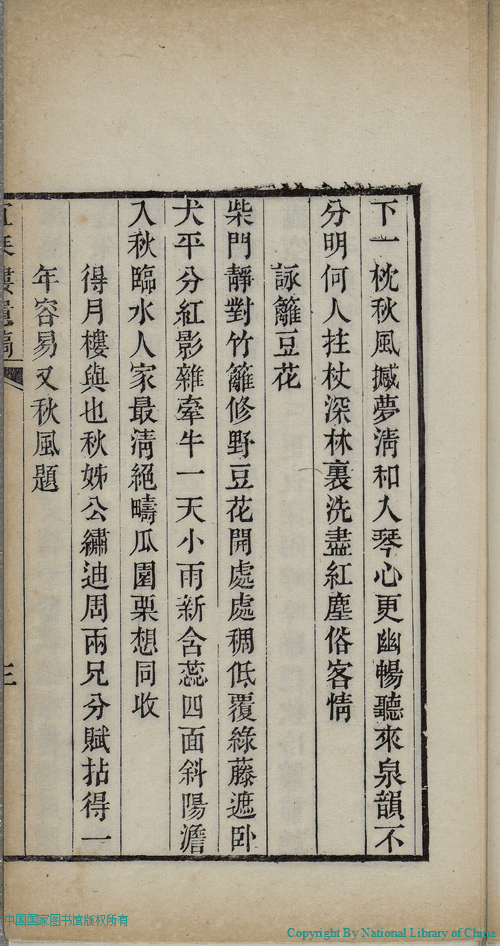 下一枕秋風撼夢淸和入琴心更幽暢聽來泉韻不
分明何人拄杖深林裏洗盡紅塵俗客情
詠籬豆花
柴門靜對竹籬修野豆花開處處稠低覆綠藤遮卧
犬平分紅影雜牽牛一天小雨新含蕊四面斜陽澹
入秋臨水人家最淸絕疇瓜園栗想同收
得月樓與也秋姊公繡迪周兩兄分賦拈得一
年容易又秋風題
三
中国国家图书馆版权所有
Copyright By National Library of China